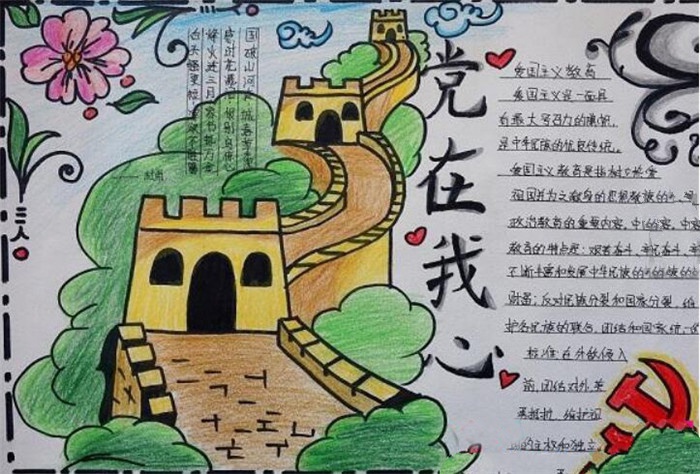 国破山河 城春草木深
感时花溅泪 恨别鸟惊心
烽火连三月 家书抵万金
白头搔更短 浑欲不胜簪
——杜甫
党在我心
爱国主义教育
爱国主义是一面具
有最大号召力的旗帜,
是中华民族的优良传统。
爱国主义教育是指树立热爱
祖国并为之献身的思想教
政治教育的重要内容。中
教育的特点是:艰苦奋斗、
不断丰富和发展中华民族的
财富;反对民族分裂和国家分裂,维
护各民族的联合,团结和国家统一的
校准:在外敌侵入
前,团结对外,英
勇抵抗,维护祖
的主权和独立。